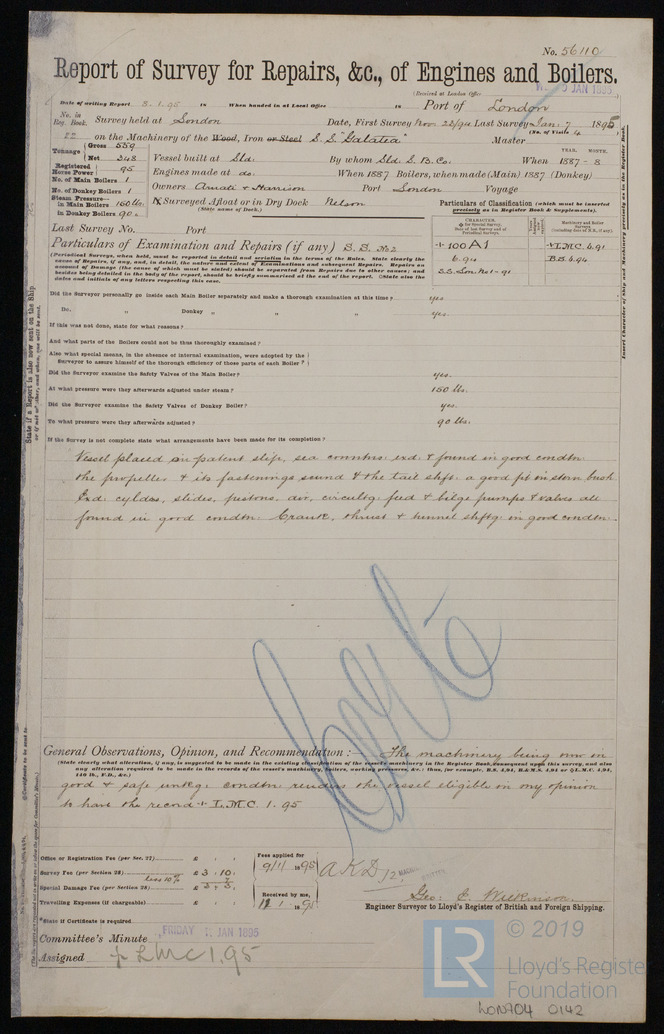 No. 56110
Report of Survey for Repairs, &c., of Engines and Boilers.
(Received at London Office
JAN 1895
Date of writing Report 8.1.95 is When handed in at Local Office is Port of London
No. in Reg. Book. Survey held at London Date, First Survey Nov 23/94 Last Survey Jan: 7 1895
(No. of Visits 4
on the Machinery of the Wood, Iron or Steel S.S. "Galatea" Master
Tonnage Gross 559
Net 348
Vessel built at Sld. By whom Sld. S. B. Co. When 1887 - 8
YEAR. MONTH.
Registered Horse Power 95
Engines made at do. When 1887 Boilers, when made (Main) 1887 (Donkey)
No. of Main Boilers 1
No. of Donkey Boilers 1
Owners Amati & Harrison Port London Voyage
Steam Pressure—
in Main Boilers 150 lbs.
in Donkey Boilers 90 "
If Surveyed Afloat or in Dry Dock Nelson
(State name of Dock.)
Particulars of Classification (which must be inserted precisely as in Register Book & Supplements).
Last Survey No. Port
Particulars of Examination and Repairs (if any) B.S. No2
(Periodical Surveys, when held, must be reported in detail and seriatim in the terms of the Rules. State clearly the cause of Repairs, if any, and, in detail, the nature and extent of Examinations and subsequent Repairs. Repairs on account of Damage (the cause of which must be stated) should be separated from Repairs due to other causes; and besides being detailed in the body of the report, should be briefly summarised at the end of the report.
+ 100 A1 + L.M.C. 6.91
B.S. 6.94
S.S. Lon. No1-91
Did the Surveyor personally go inside each Main Boiler separately and make a thorough examination at this time? yes
Do. " Donkey " " " yes.
If this was not done, state for what reasons?
And what parts of the Boilers could not be thus thoroughly examined?
Also what special means, in the absence of internal examination, were adopted by the Surveyor to assure himself of the thorough efficiency of those parts of each Boiler?
Did the Surveyor examine the Safety Valves of the Main Boiler? yes.
At what pressure were they afterwards adjusted under steam? 150 lbs.
Did the Surveyor examine the Safety Valves of Donkey Boiler? yes.
To what pressure were they afterwards adjusted? 90 lbs.
If the Survey is not complete state what arrangements have been made for its completion?
Vessel placed on patent slip, sea connctns: exd. & found in good condtn
the propeller & its fastenings sound & the tail shft. a good fit in stern bush
Exd: cyldrs, slides, pistons, air, circultg. feed & bilge pumps & valves all
found in good condtn: Crank, thrust & tunnel shftg in good condtn.
General Observations, Opinion, and Recommendation:— The machinery being now in
(State clearly what alteration, if any, is suggested to be made in the existing classification of the vessel's machinery in the Register Book, consequent upon this survey, and also any alteration required to be made in the records of the vessel's machinery, boilers, working pressures, &c.: thus, for example, B.S. 4,94, B.&M.S. 4,94 or L.M.C. 4,94, 140 lb., F.D., &c.)
good & safe workg. condtn renders the vessel eligible in my opinion
to have the record + L.M.C. 1.95
Office or Registration Fee (per Sec. 27).. £ : :
Survey Fee (per Section 28)... £ 3 : 10 :
less 10%
Special Damage Fee (per Section 28)... £ 3 : 3 :
Travelling Expenses (if chargeable) £ : :
Fees applied for
9/1/1895
Received by me,
12.1.1895
Geo: E. Wilkinson
Engineer Surveyor to Lloyd's Register of British and Foreign Shipping.
*State if Certificate is required
Committee's Minute FRIDAY 11 JAN 1895
Assigned + LMC 1.95
© 2019
LR
Lloyd's Register
Foundation
LON704 0142